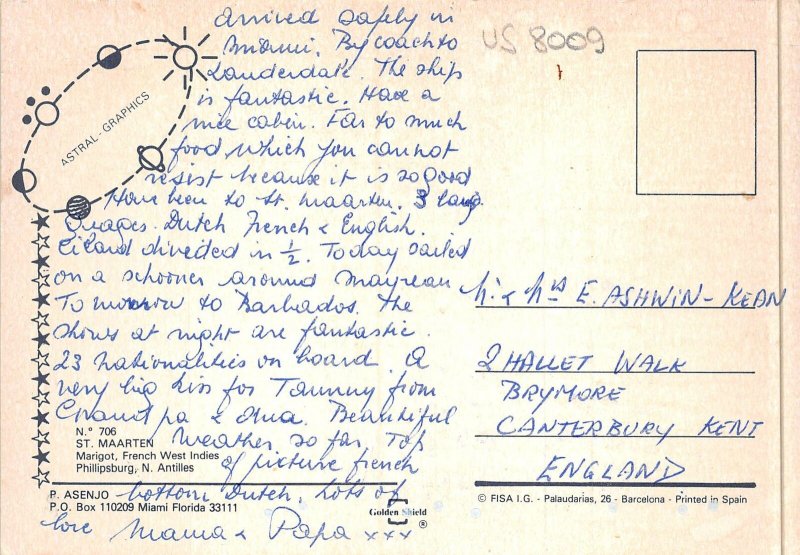 Arrived safely in
Miami. By coach to
Lauderdale. The ship
is fantastic. Have a
nice cabin. Far to much
food which you cannot
resist because it is so good
Have been to St. Maarten. 3 lang
guages. Dutch French & English.
Eiland divided in ½. Today sailed
on a schooner around Mayreau
Tomorrow to Barbados. The
shows at night are fantastic.
23 nationalities on board. A
very big kiss for Tammy from
Grandpa & Oma. Beautiful
Weather so far. Top
of picture french
bottom Dutch. Lots of
love Mama & Papa xxx
ASTRAL-GRAPHICS
N.° 706
ST. MAARTEN
Marigot, French West Indies
Phillipsburg, N. Antilles
P. ASENJO
P.O. Box 110209 Miami Florida 33111
Golden Shield
®
US 8009
Mr & Mrs E. ASHWIN-KEAN
2 HALLET WALK
BRYMORE
CANTERBURY KENT
ENGLAND
© FISA I.G. - Palaudarias, 26 - Barcelona - Printed in Spain